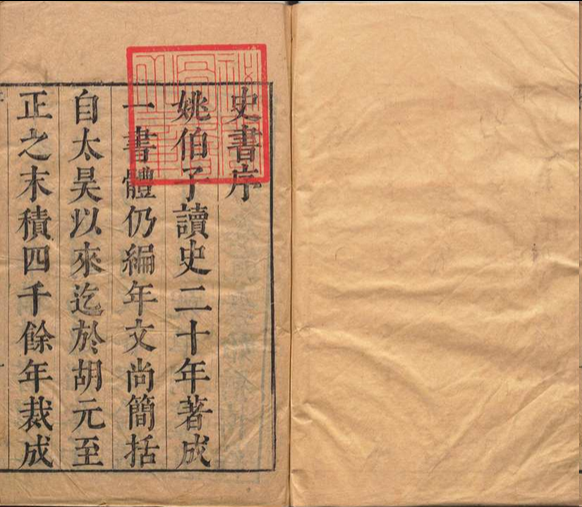 史書序
姚伯子讀史二十年著成
一書體仍編年文尚簡括
自太昊以來迄於胡元至
正之末積四千餘年裁成